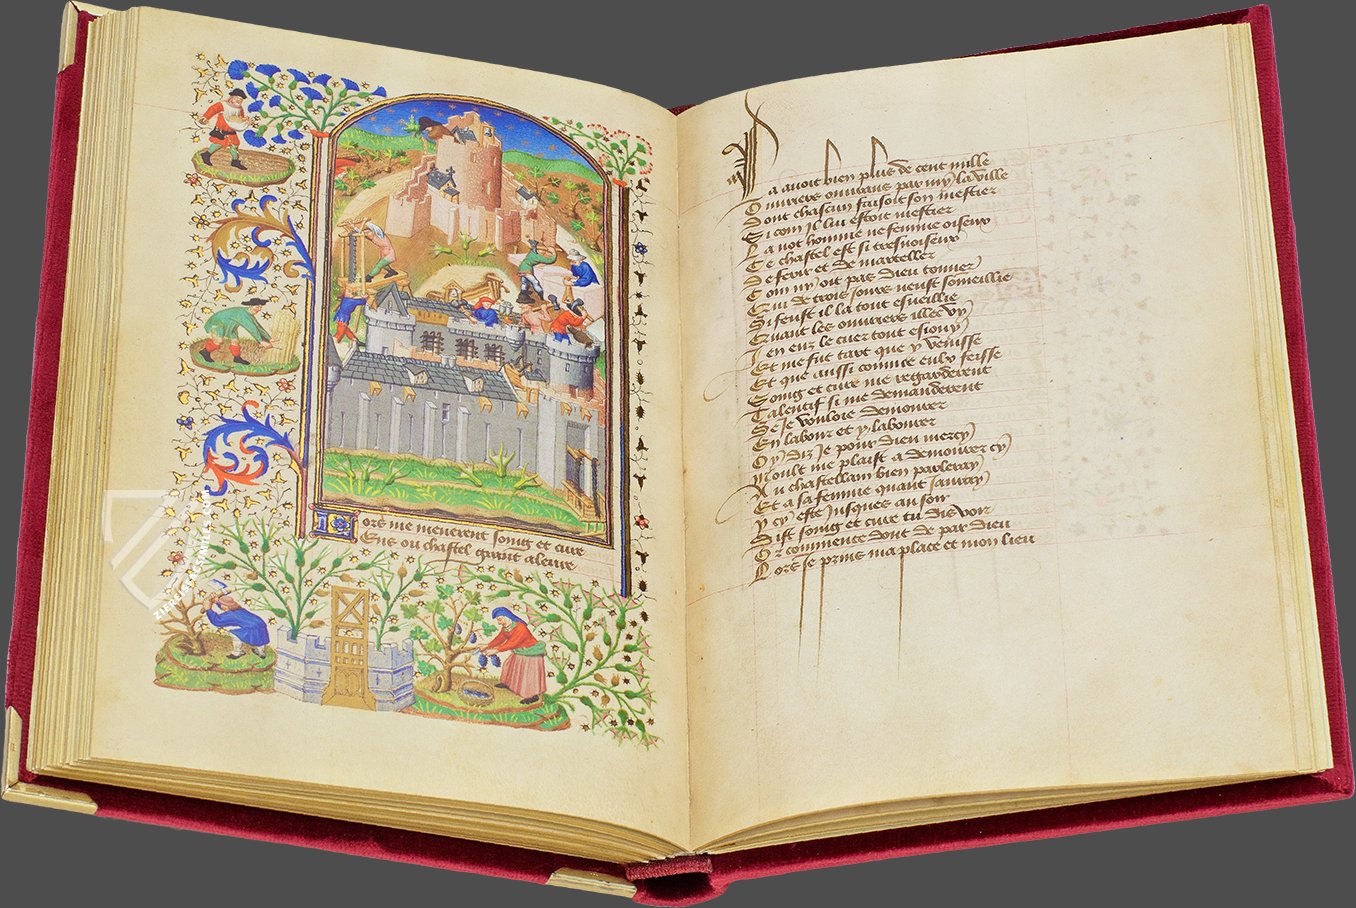 Lors me menerent soing et cure
Ens ou chastel grant aleure
La avoit bien plus de cent mille
Ouvriers ouvrans parmy la ville
Dont chascun faisoit son mestier
Si com il lui estoit mestier
La not homme ne femme oiseux
Ce chastel est si tresnoiseux
De ferir et de marteller
Com ny oit pas dieu tonner
Qui de trois jours neust someillie
Si feust il la tout esveillie
Quant les ouvriers illec vy
Jen euz le cuer tout esjouy
Et me fut tart que y venisse
Et que aussi comme eulx feisse
Soing et cure me regarderent
Talentif si me demanderent
Se je vouloie demourer
En labour et y labourer
Oy diz je pour dieu mercy
Moult me plaist a demourer cy
Au chastellain bien parleray
Et a sa femme quant jauray
Cy este jusques au soir
Dist soing et cure tu dis voir
Or commence dont de par dieu
Lors je prins ma place et mon lieu